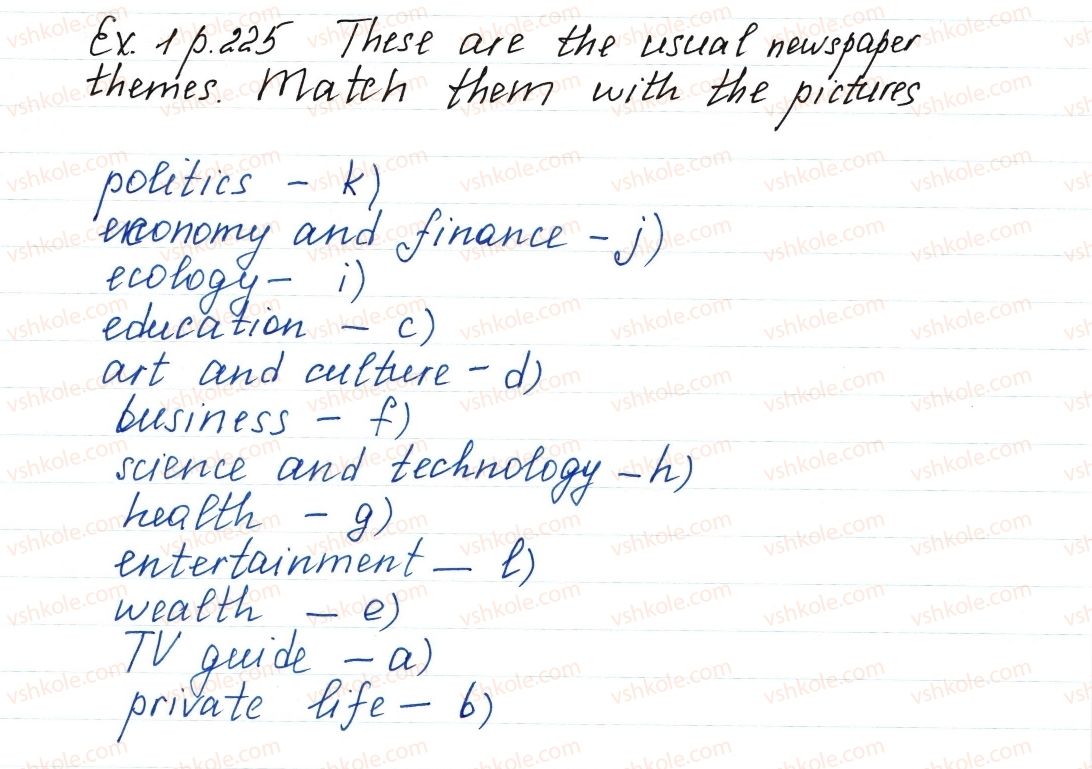 Ex. 1 p.225 These are the usual newspaper
themes. Match them with the pictures
politics - k)
economy and finance - j)
ecology - i)
education - c)
art and culture - d)
business - f)
science and technology - h)
health - g)
entertainment - l)
wealth - e)
TV guide - a)
private life - b)